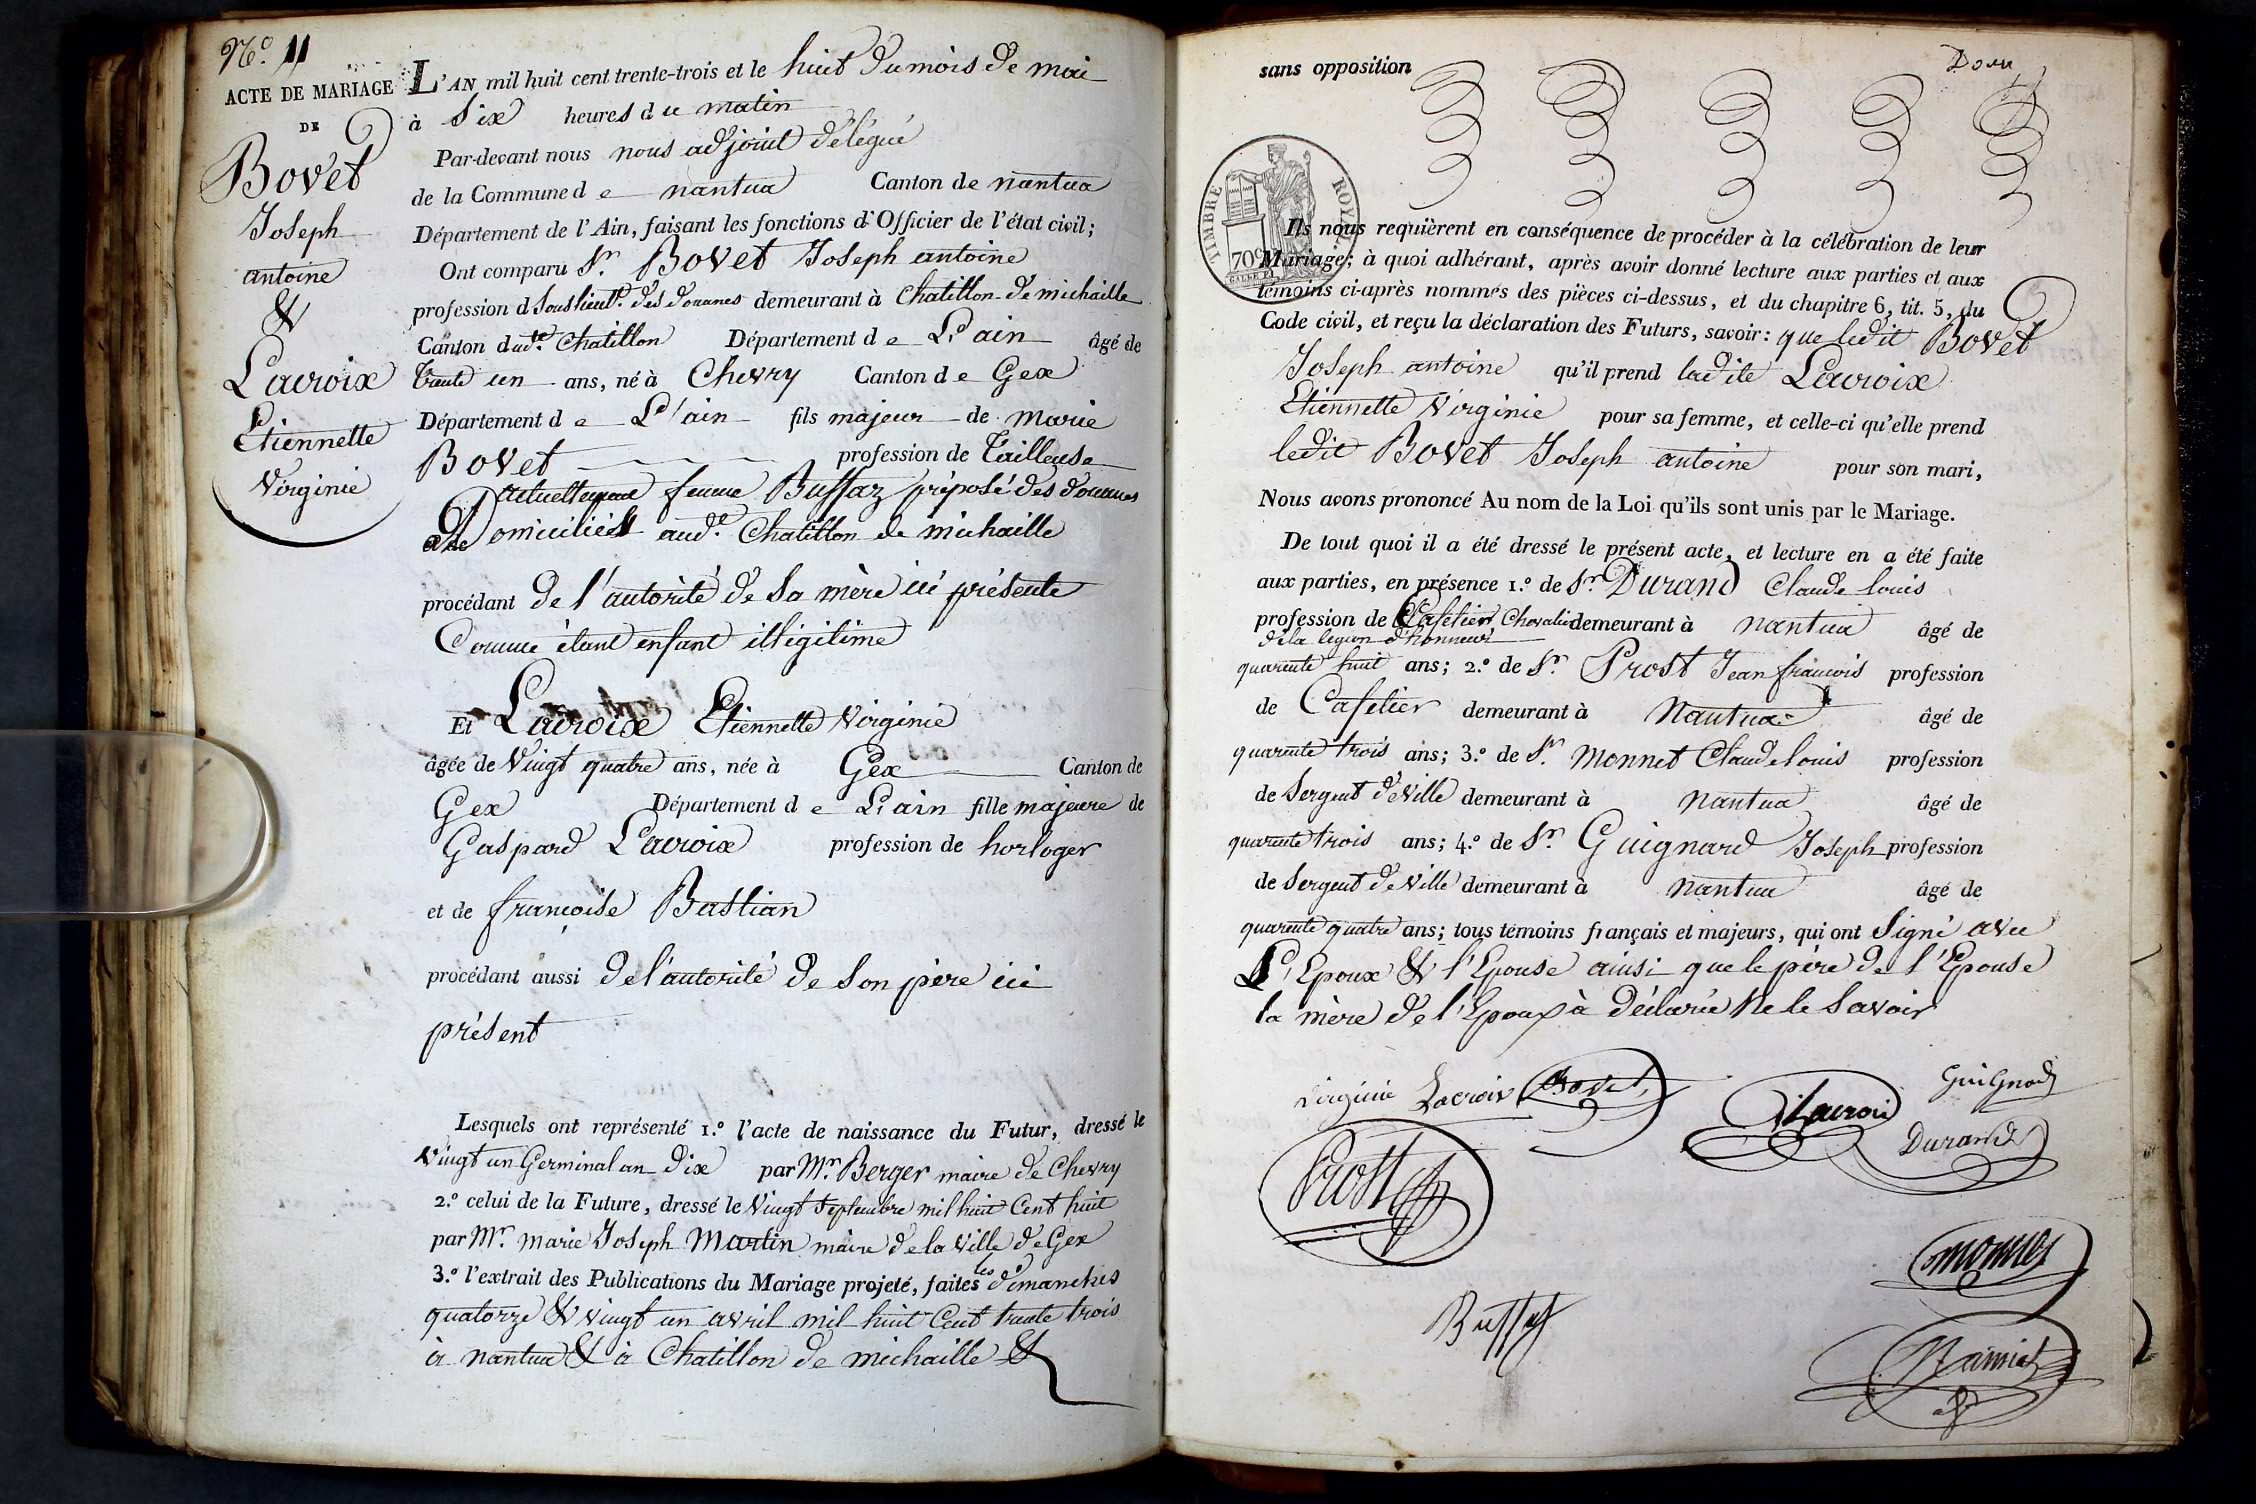 N.º 11
ACTE DE MARIAGE
DE
Bovet
Joseph
antoine
&
Lacroix
Etiennette
Virginie
L'AN mil huit cent trente-trois et le huit du mois de mai
à Six heures du matin
Par-devant nous nous adjoint délégué
de la Commune de nantua Canton de nantua
Département de l'Ain, faisant les fonctions d'Officier de l'état civil;
Ont comparu Sr. Bovet Joseph antoine
profession d Souslieut.t des douanes demeurant à Chatillon de michaille
Canton dud.t Chatillon Département de L'ain âgé de
trente un ans, né à Chevry Canton de Gex
Département de L'ain fils majeur de marie
Bovet profession de Tailleuse
actuellement femme Buffaz préposé des douanes
Domiciliés aud.t Chatillon de michaille
procédant de l'autorité de Sa mère ici présente
Comme étant enfant illégitime
Et Lacroix Etiennette Virginie
âgée de Vingt quatre ans, née à Gex Canton de
Gex Département de L'ain fille majeure de
Gaspard Lacroix profession de horloger
et de françoise Bastian
procédant aussi de l'autorité de Son père ici
présent
Lesquels ont représenté 1.º l'acte de naissance du Futur, dressé le
Vingt un Germinal an dix par Mr. Berger maire de Chevry
2.º celui de la Future, dressé le Vingt Septembre mil huit Cent huit
par Mr. marie Joseph Martin maire de la Ville de Gex
3.º l'extrait des Publications du Mariage projeté, faites les dimanches
quatorze & vingt un avril mil huit Cent trente trois
à nantua & à Chatillon de michaille &
sans opposition
TIMBRE ROYAL
70c
Ils nous requièrent en conséquence de procéder à la célébration de leur
Mariage; à quoi adhérant, après avoir donné lecture aux parties et aux
témoins ci-après nommés des pièces ci-dessus, et du chapitre 6, tit. 5, du
Code civil, et reçu la déclaration des Futurs, savoir: que ledit Bovet
Joseph antoine qu'il prend ladite Lacroix
Etiennette Virginie pour sa femme, et celle-ci qu'elle prend
ledit Bovet Joseph antoine pour son mari,
Nous avons prononcé Au nom de la Loi qu'ils sont unis par le Mariage.
De tout quoi il a été dressé le présent acte, et lecture en a été faite
aux parties, en présence 1.º de Sr. Durand Claude louis
profession de Cafetier Chevalier demeurant à nantua âgé de
de la legion d'honneur
quarente huit ans; 2.º de Sr. Prost Jean françois profession
de Cafetier demeurant à Nantua âgé de
quarente trois ans; 3.º de Sr. Monnet Claude louis profession
de Sergent de Ville demeurant à nantua âgé de
quarente trois ans; 4.º de Sr. Guignard Joseph profession
de Sergent de Ville demeurant à nantua âgé de
quarente quatre ans; tous témoins français et majeurs, qui ont Signé avec
L'Epoux & l'Epouse ainsi que le père de l'Epouse
la mère de l'Epoux à déclarée Ne le Savoir
Virginie Lacroix Bovet
Lacroix
Guignard
Durand
Prost
monnet
Buffaz